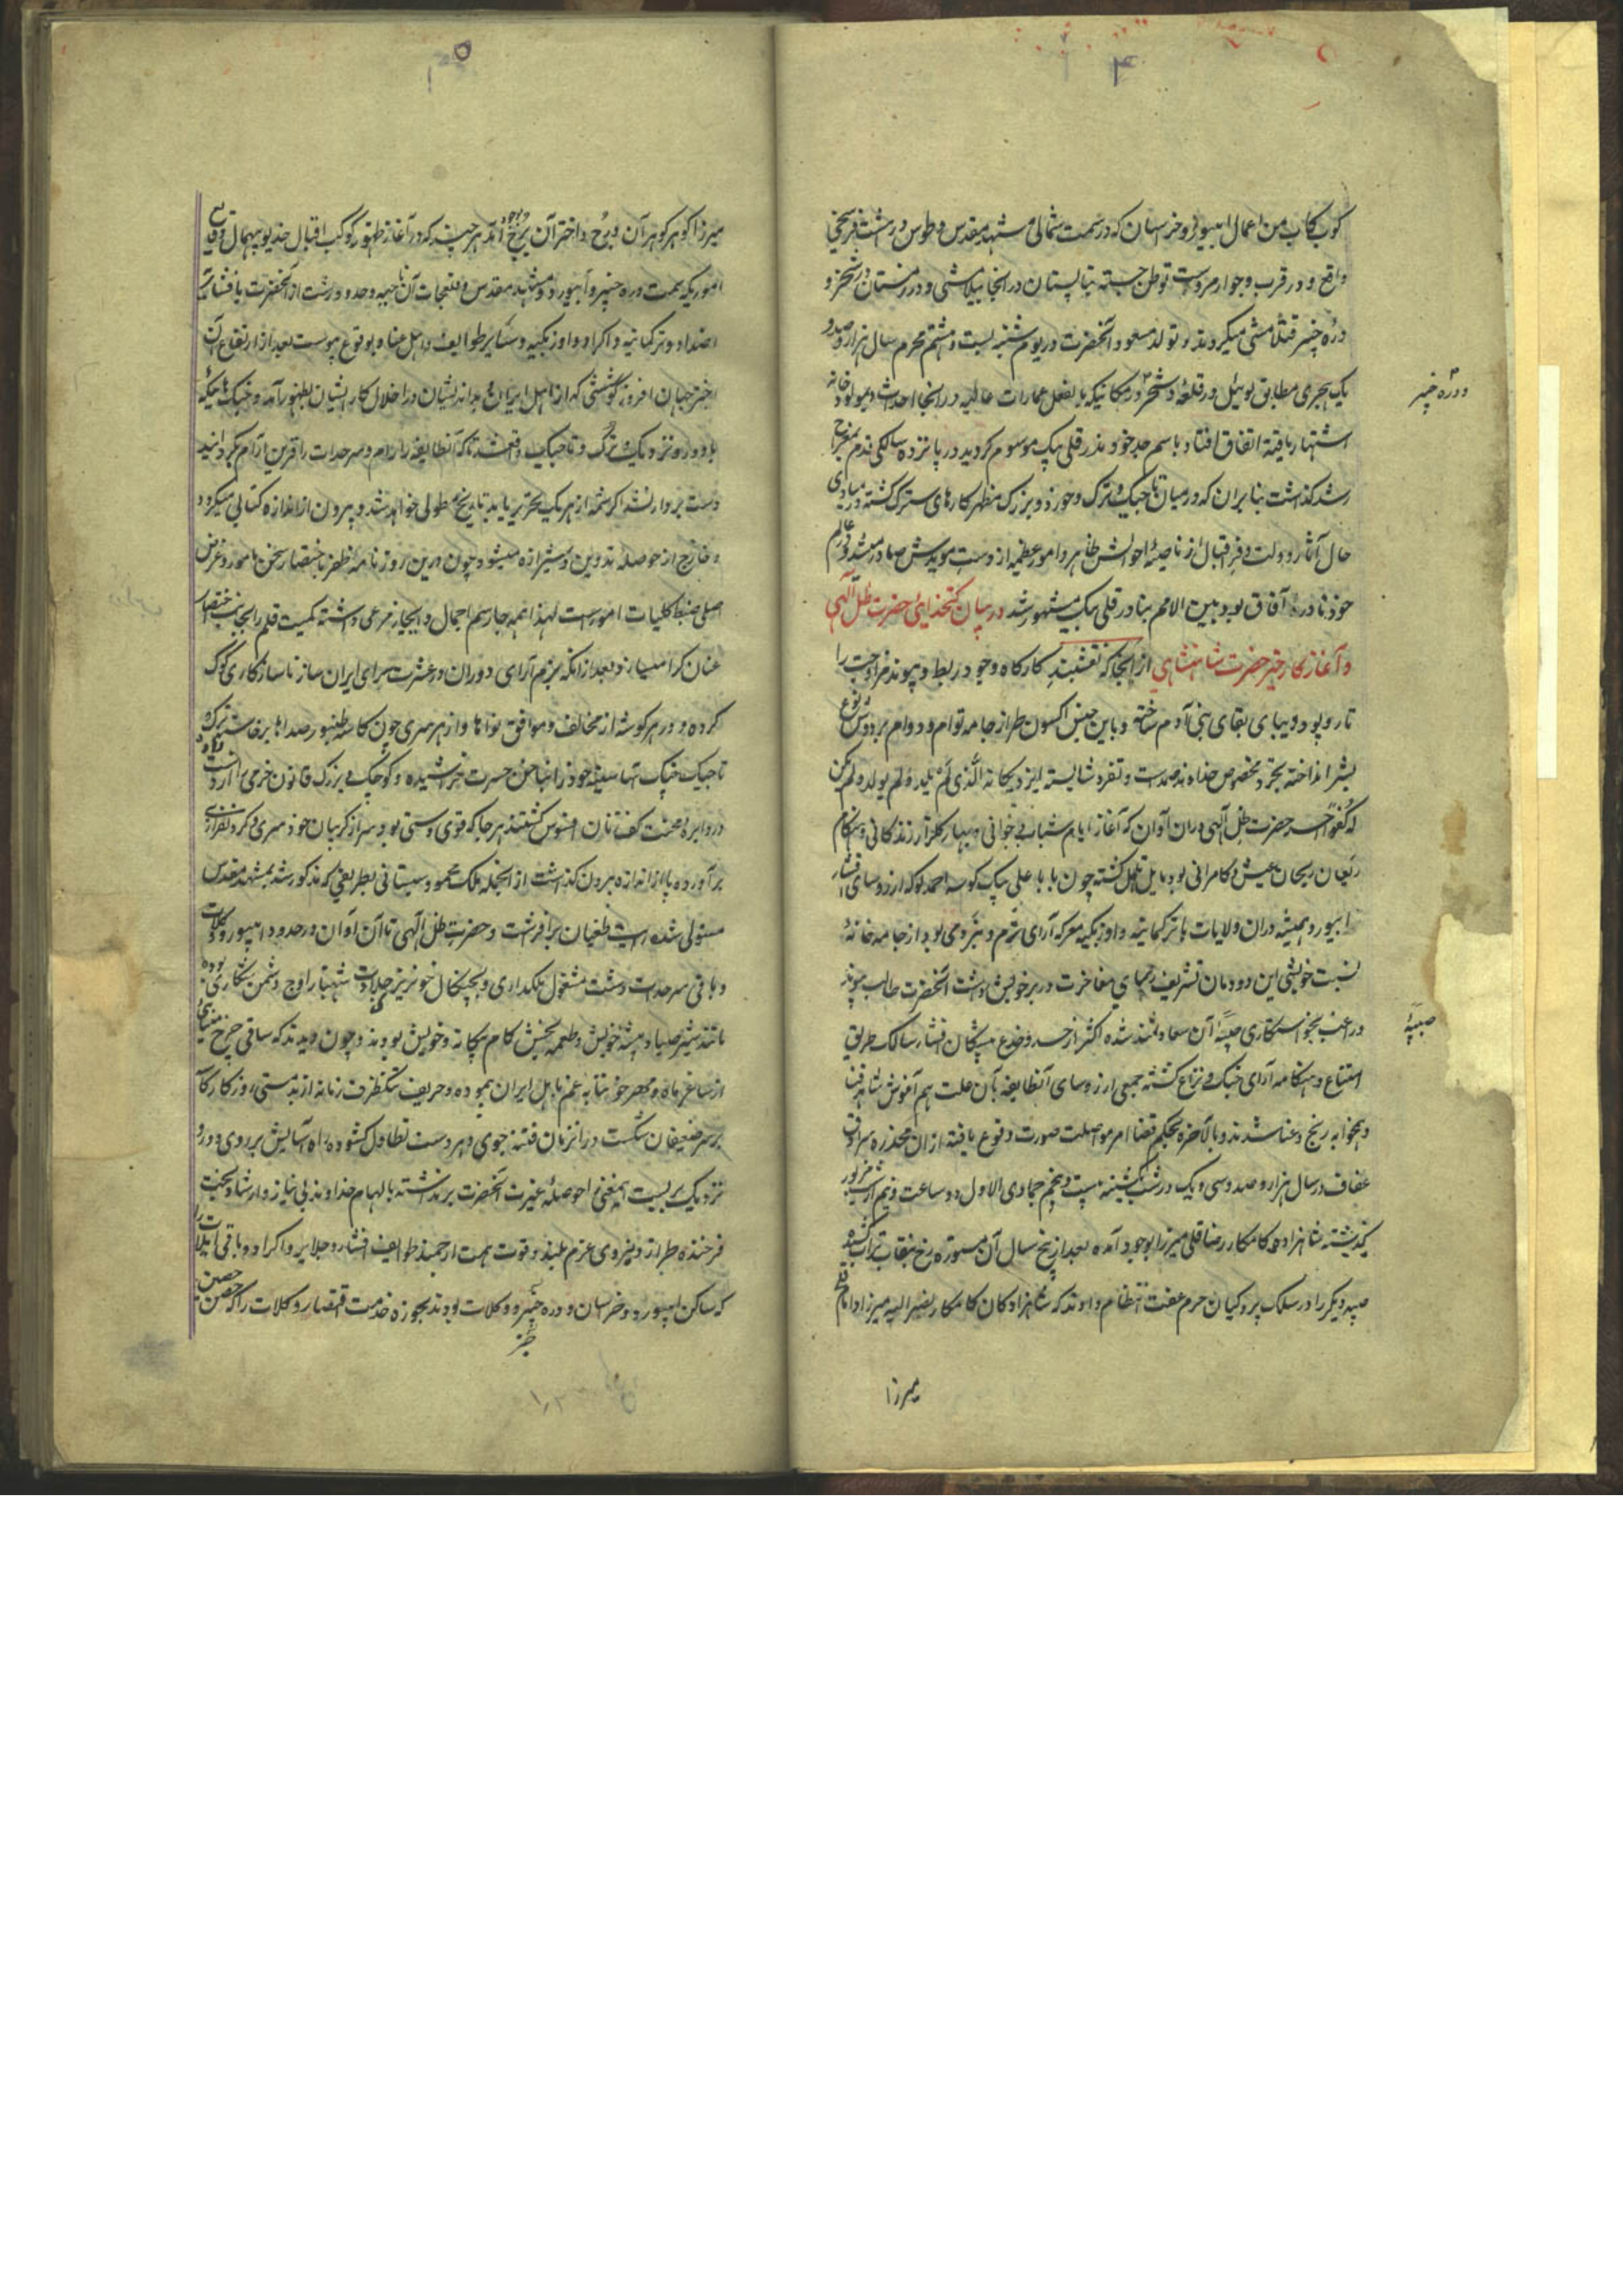 ۴
کوبکان من اعمال ابیورد و خراسان که در سمت شمالی مشهد مقدس و طوس در شت فرسخی
واقع و در قرب و جوار مروست توطن جسته تابستان در آنجا ییلامشی و در زمستان در دستجرد و
دره چنپر قشلامشی میکردند و تولد مسعود آنحضرت در یوم شنبه بیست و هشتم محرم سال هزار و صد و
یک هجری مطابق لوی ئیل در قلعه دستجرد در مکانیکه بالفعل عمارات عالیه در آنجا احداث و بمولود خانه
اشتهار یافته اتفاق افتاد باسم جد خود نذر قلی بیک موسوم گردید در پانزده سالگی قدم بمعراج
رشد گذاشت بنا بر آن که در میان تاجیک و ترک و خورد و بزرگ مظهر کارهای سترک گشته در مبادی
حال آثار دولت و فر اقبال از ناصیهٔ احوالش ظاهر و امور عظیمه از دست مویدش صادر میشد و در عالم
خود نادرهٔ آفاق بود بین الامم بنادر قلی بیک مشهور شد در بیان کتخدائی حضرت ظل الهی
و آغاز کار خیر حضرت شاهنشاهی از آنجا که نقشبند کارگاه وجود ربط و پیوند مزاوجت را
تار و پود دیبای بقای بنی آدم ساخته و باین جنس اکسون طراز جامه توام و دوام بر دوش نوع
بشر انداخته تجرد مخصوص خداوند صمدست و تفرد شایسته ایزد یگانه الذی لم یلد و لم یولد و لم یکن
له کفوا احد حضرت ظل الهی در آن آوان که آغاز ایام شباب و جوانی و بهار گلزار زندگانی و هنگام
ریعان ریحان عیش و کامرانی بود مایل تاهل گشته چون بابا علی بیک کوسه احمدلو که از رؤسای افشار
ابیورد و همیشه در آن ولایات با ترکمانیه و اوزبکیه معرکه آرای رزم و نبرد می بود از جامه خانهٔ
نسبت خویشی این دودمان تشریف رسای مفاخرت در بر خویش داشت آنحضرت طالب پیوند
و راغب بخواستگاری صبیهٔ آن سعادتمند شده اکثر از حسد و خدع بیگان افشار سالک طریق
امتناع و هنگامه آرای جنگ و نزاع گشته جمعی از رؤسای آنطایفه بآن علت هم آغوش شاهد فنا
و همخوابه رنج و عنا شدند و بالاخره بحکم قضا امر مواصلت صورت وقوع یافته از آن مخدره سرادق
عفاف در سال هزار و صد و سی و یک در شب یکشنبه بیست و پنجم جمادی الاول دو ساعت و نیم از شب مزبور
گذشته شاهزاده کامکار رضا قلی میرزا بوجود آمده بعد از پنج سال آن مستوره رخ بنقاب تراب کشیده
صبیه دیگر را در سلک پردگیان حرم عفت انتظام دادند که شاهزادگان کامکار نصرالله میرزا و امام قلی
میرزا
و دره چنپر
صبیهٔ
۵
میرزا گوهر گوهر آن درج و اختر آن برج اند هر چند که در آغاز ظهور کوکب اقبال خدیو بیهمال وقایع
اموریکه بسمت دره چنپر و ابیورد و مشهد مقدس و ملحقات آن ناحیه و حدود رشت از آنحضرت با افشاریه
اضداد و ترکمانیه و اکراد و اوزبکیه و سایر طوایف و اهل عناد بوقوع پیوست بعد از ارتفاع آن
اختر جهان افروز کوششی که از اهل ایران بداندیشان در اخلال کار ایشان بظهور آمد و جنگ هائیکه
با دور و نزدیک و ترک و تاجیک واقع شد تا که آنطایفه را رام و سرحدات را قرین آرام گردانید
دست بردارند اگر شمهٔ از هر یک بتحریر یابد تاریخ مطولی خواهد شد و بیرون از اندازه کتابی میگردد
و خارج از حوصله تدوین و شیرازه میشود چون درین روزنامهٔ ظفر باختصار سخن مامور و غرض
اصلی ضبط کلیات امورست لهذا همه جا رسم اجمال و ایجاز مرعی داشته کمیت قلم را بجانب اختصار
عنان گرا میسازد و بعد از آنکه بزم آرای دوران در عشرت سرای ایران ساز ناسازگاری کوک
کرده و در هر گوشه از مخالف و موافق نواها و از هر سری چون کاسه طنبور صداها برخاست ترک و
تاجیک چنگ آسا سینه خود را بناخن حسرت خراشیده و کوچک و بزرگ قانون خرمی را از دست داده
در دایرهٔ محنت کف زنان افسوس گشتند هر جا که قوی دستی بود سر از گریبان خودسری و گردن افرازی
برآورده پا از اندازه بیرون گذاشت از آنجمله ملک محمود سیستانی بطریقی که مذکور شد بمشهد مقدس
مستولی شده رایت طغیان برافراشت و حضرت ظل الهی تا آن آوان در حدود ابیورد و کلات
و باقی سرحدات دشت مشغول ملکداری و بچنگال خونریز جلادت شهباز اوج دشمن شکاری بوده
مانند شیر صیاد پیشه خویش و طعمه بخش کام بیگانه و خویش بودند و چون دیدند که ساقی چرخ مینائی
از ساغر ماه و مهر خونابه غم باهل ایران پیموده و حریف تنگ ظرف زمانه از بدمستی روزگار کاسه
بر سر ضعیفان شکست در آنزمان فتنه جوی و هر دست تطاول گشوده راه آسایش بر روی دور و
نزدیک بر بست اینمعنی را حوصلهٔ غیرت آنحضرت برنداشته بالهام خداوند بی نیاز و ارشاد بخت
فرخنده طراز و نیروی عزم بلند و قوت همت ارجمند طوایف افشار و جلایر و اکراد و باقی ایلات را
که ساکن ابیورد و خراسان و دره چنپر و کلات بودند بحوزه خدمت احضار و کلات را که حصن